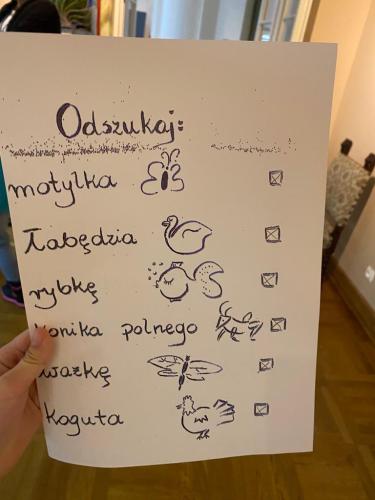 Odszukaj:
motylka
Łabędzia
rybkę
konika polnego
ważkę
Koguta